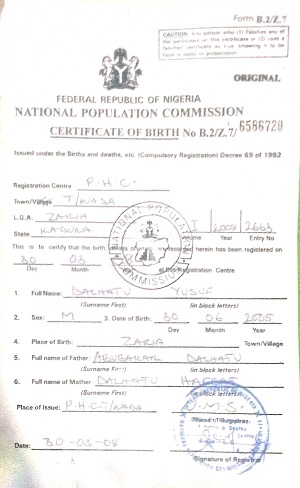 Form B.2/Z.7
CAUTION: Any person who (1) falsifies any of the particulars on this certificate or (2) uses a falsified certificate as true, knowing it to be false is liable to prosecution.
ORIGINAL
FEDERAL REPUBLIC OF NIGERIA
NATIONAL POPULATION COMMISSION
CERTIFICATE OF BIRTH No B.2/Z.7/ 6586720
Issued under the Births and deaths, etc. (Compulsory Registration) Decree 69 of 1992
Registration Centre P.H.C.
Town/Village T/WADA
L.G.A. ZARIA
I 2008 2663
State KADUNA Volume Year Entry No.
NATIONAL POPULATION COMMISSION
This is to certify that the birth herein has been registered on
30 03 at this Registration Centre
Day Month
1. Full Name: DALHATU YUSUF
(Surname First) (in block letters)
2. Sex: M 3. Date of Birth: 30 06 2005
Day Month Year
4. Place of Birth: ZARIA Town/Village
5. Full name of Father ABUBAKAR DALHATU
(Surname First) (in block letters)
6. Full name of Mother DALHATU
(Surname First) (in block letters)
Place of Issue: P.H.C. T/WADA
Date: 30-03-08
Signature of Registrar